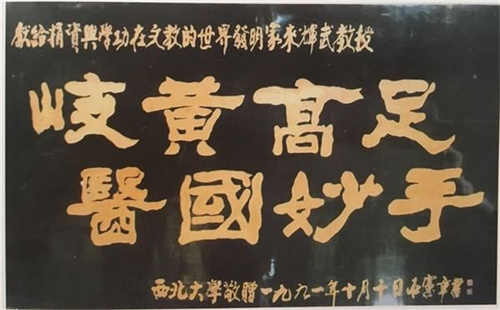 献給捐資興學功在文教的世界發明家来輝武教授
岐黄高足
醫國妙手
西北大學敬贈一九九一年十月十日石憲章書